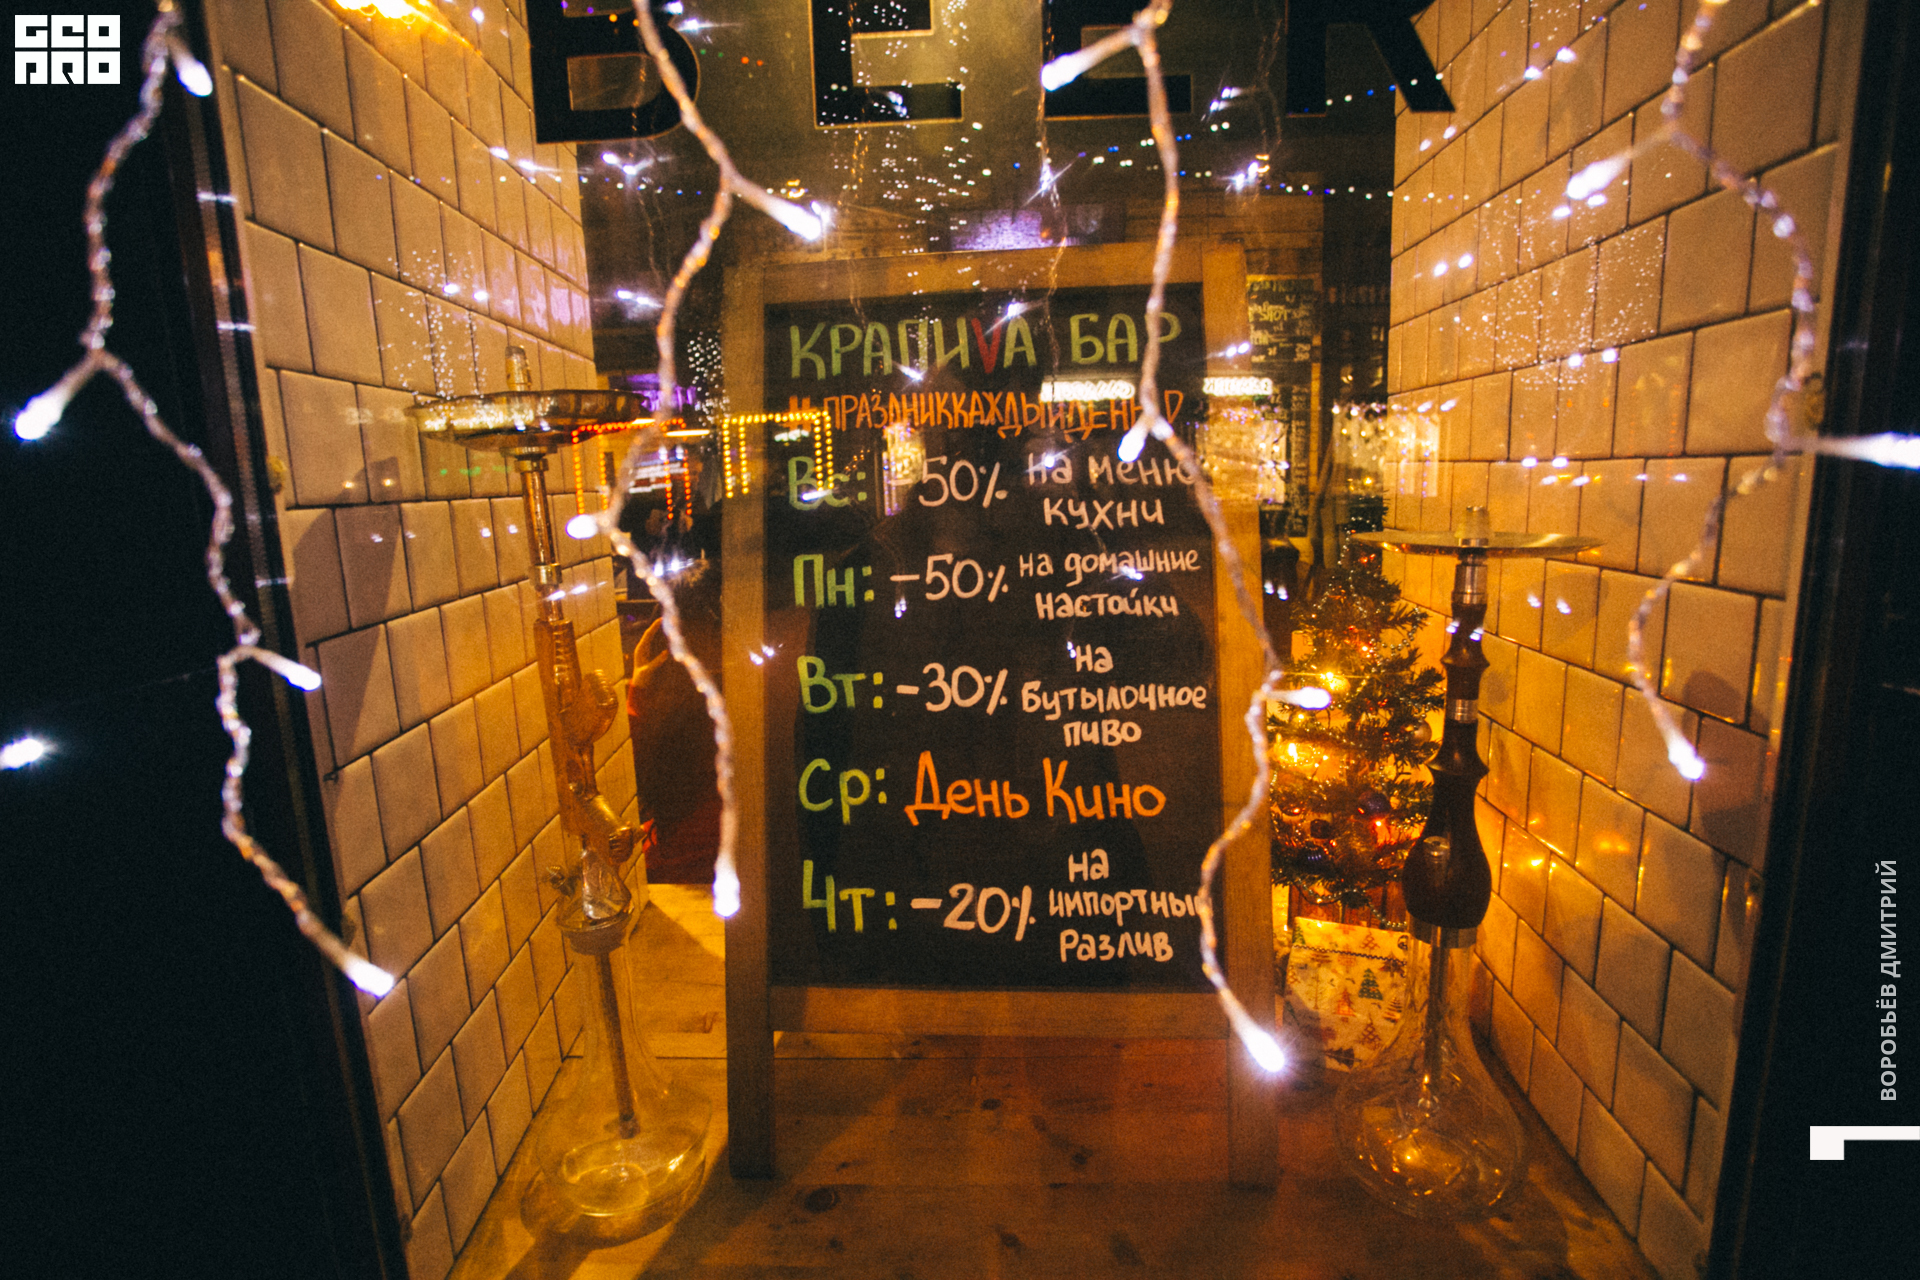 GEO
PRO
BEER
КРАПИVА БАР
#ПРАЗДНИККАЖДЫЙДЕНЬ
Вс: -50% на меню
кухни
Пн: -50% на домашние
настойки
Вт: -30% на
бутылочное
пиво
Ср: День Кино
Чт: -20% на
импортный
разлив
ВОРОБЬЁВ ДМИТРИЙ